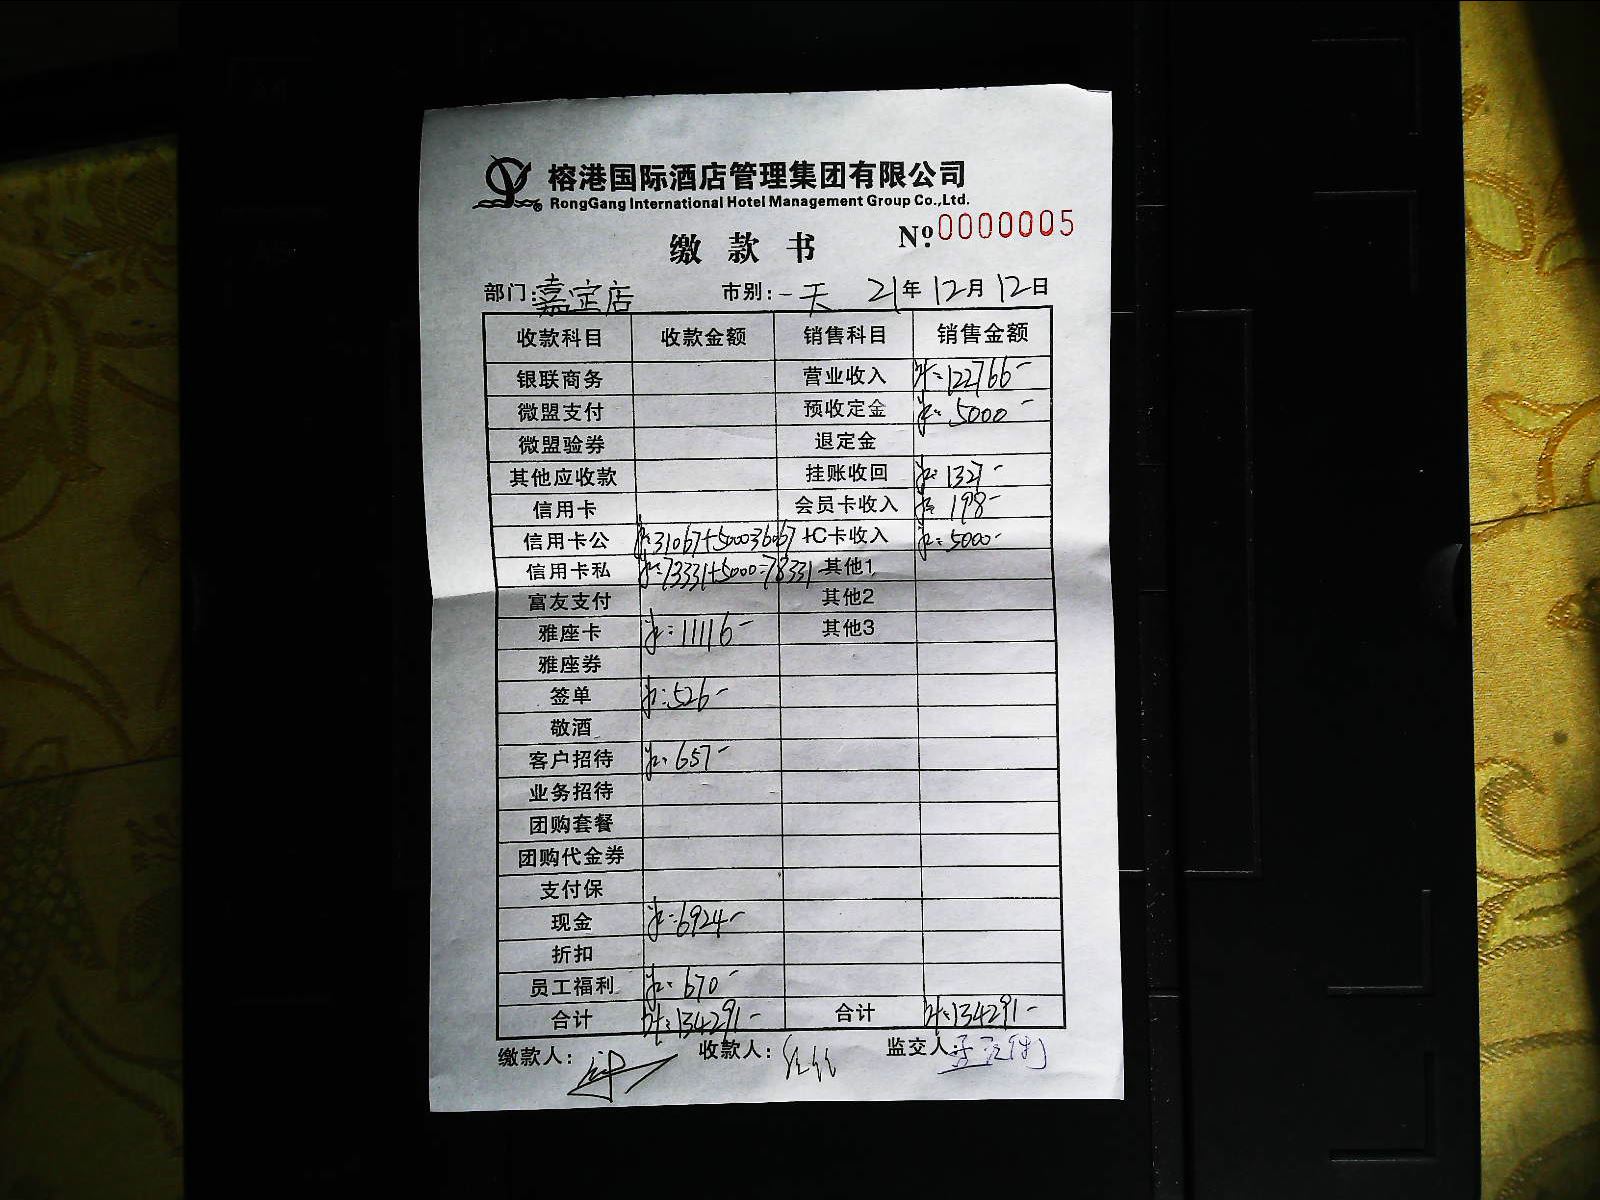 榕港国际酒店管理集团有限公司
RongGang International Hotel Management Group Co.,Ltd.
缴款书 Nº.0000005
部门:嘉定店 市别:一天 21年12月12日
收款科目 收款金额 销售科目 销售金额
银联商务 营业收入 ¥:122766-
微盟支付 预收定金 ¥:5000-
微盟验券 退定金
其他应收款 挂账收回 ¥:1327-
信用卡 会员卡收入 ¥:198-
信用卡公 ¥:31067+5000 36067 IC卡收入 ¥:5000-
信用卡私 ¥:73331+5000=78331 其他1
富友支付 其他2
雅座卡 ¥:11116- 其他3
雅座券
签单 ¥:526-
敬酒
客户招待 ¥:657-
业务招待
团购套餐
团购代金券
支付保
现金 ¥:6924-
折扣
员工福利 ¥:670-
合计 ¥:134291- 合计 ¥:134291-
缴款人: 收款人: 监交人: